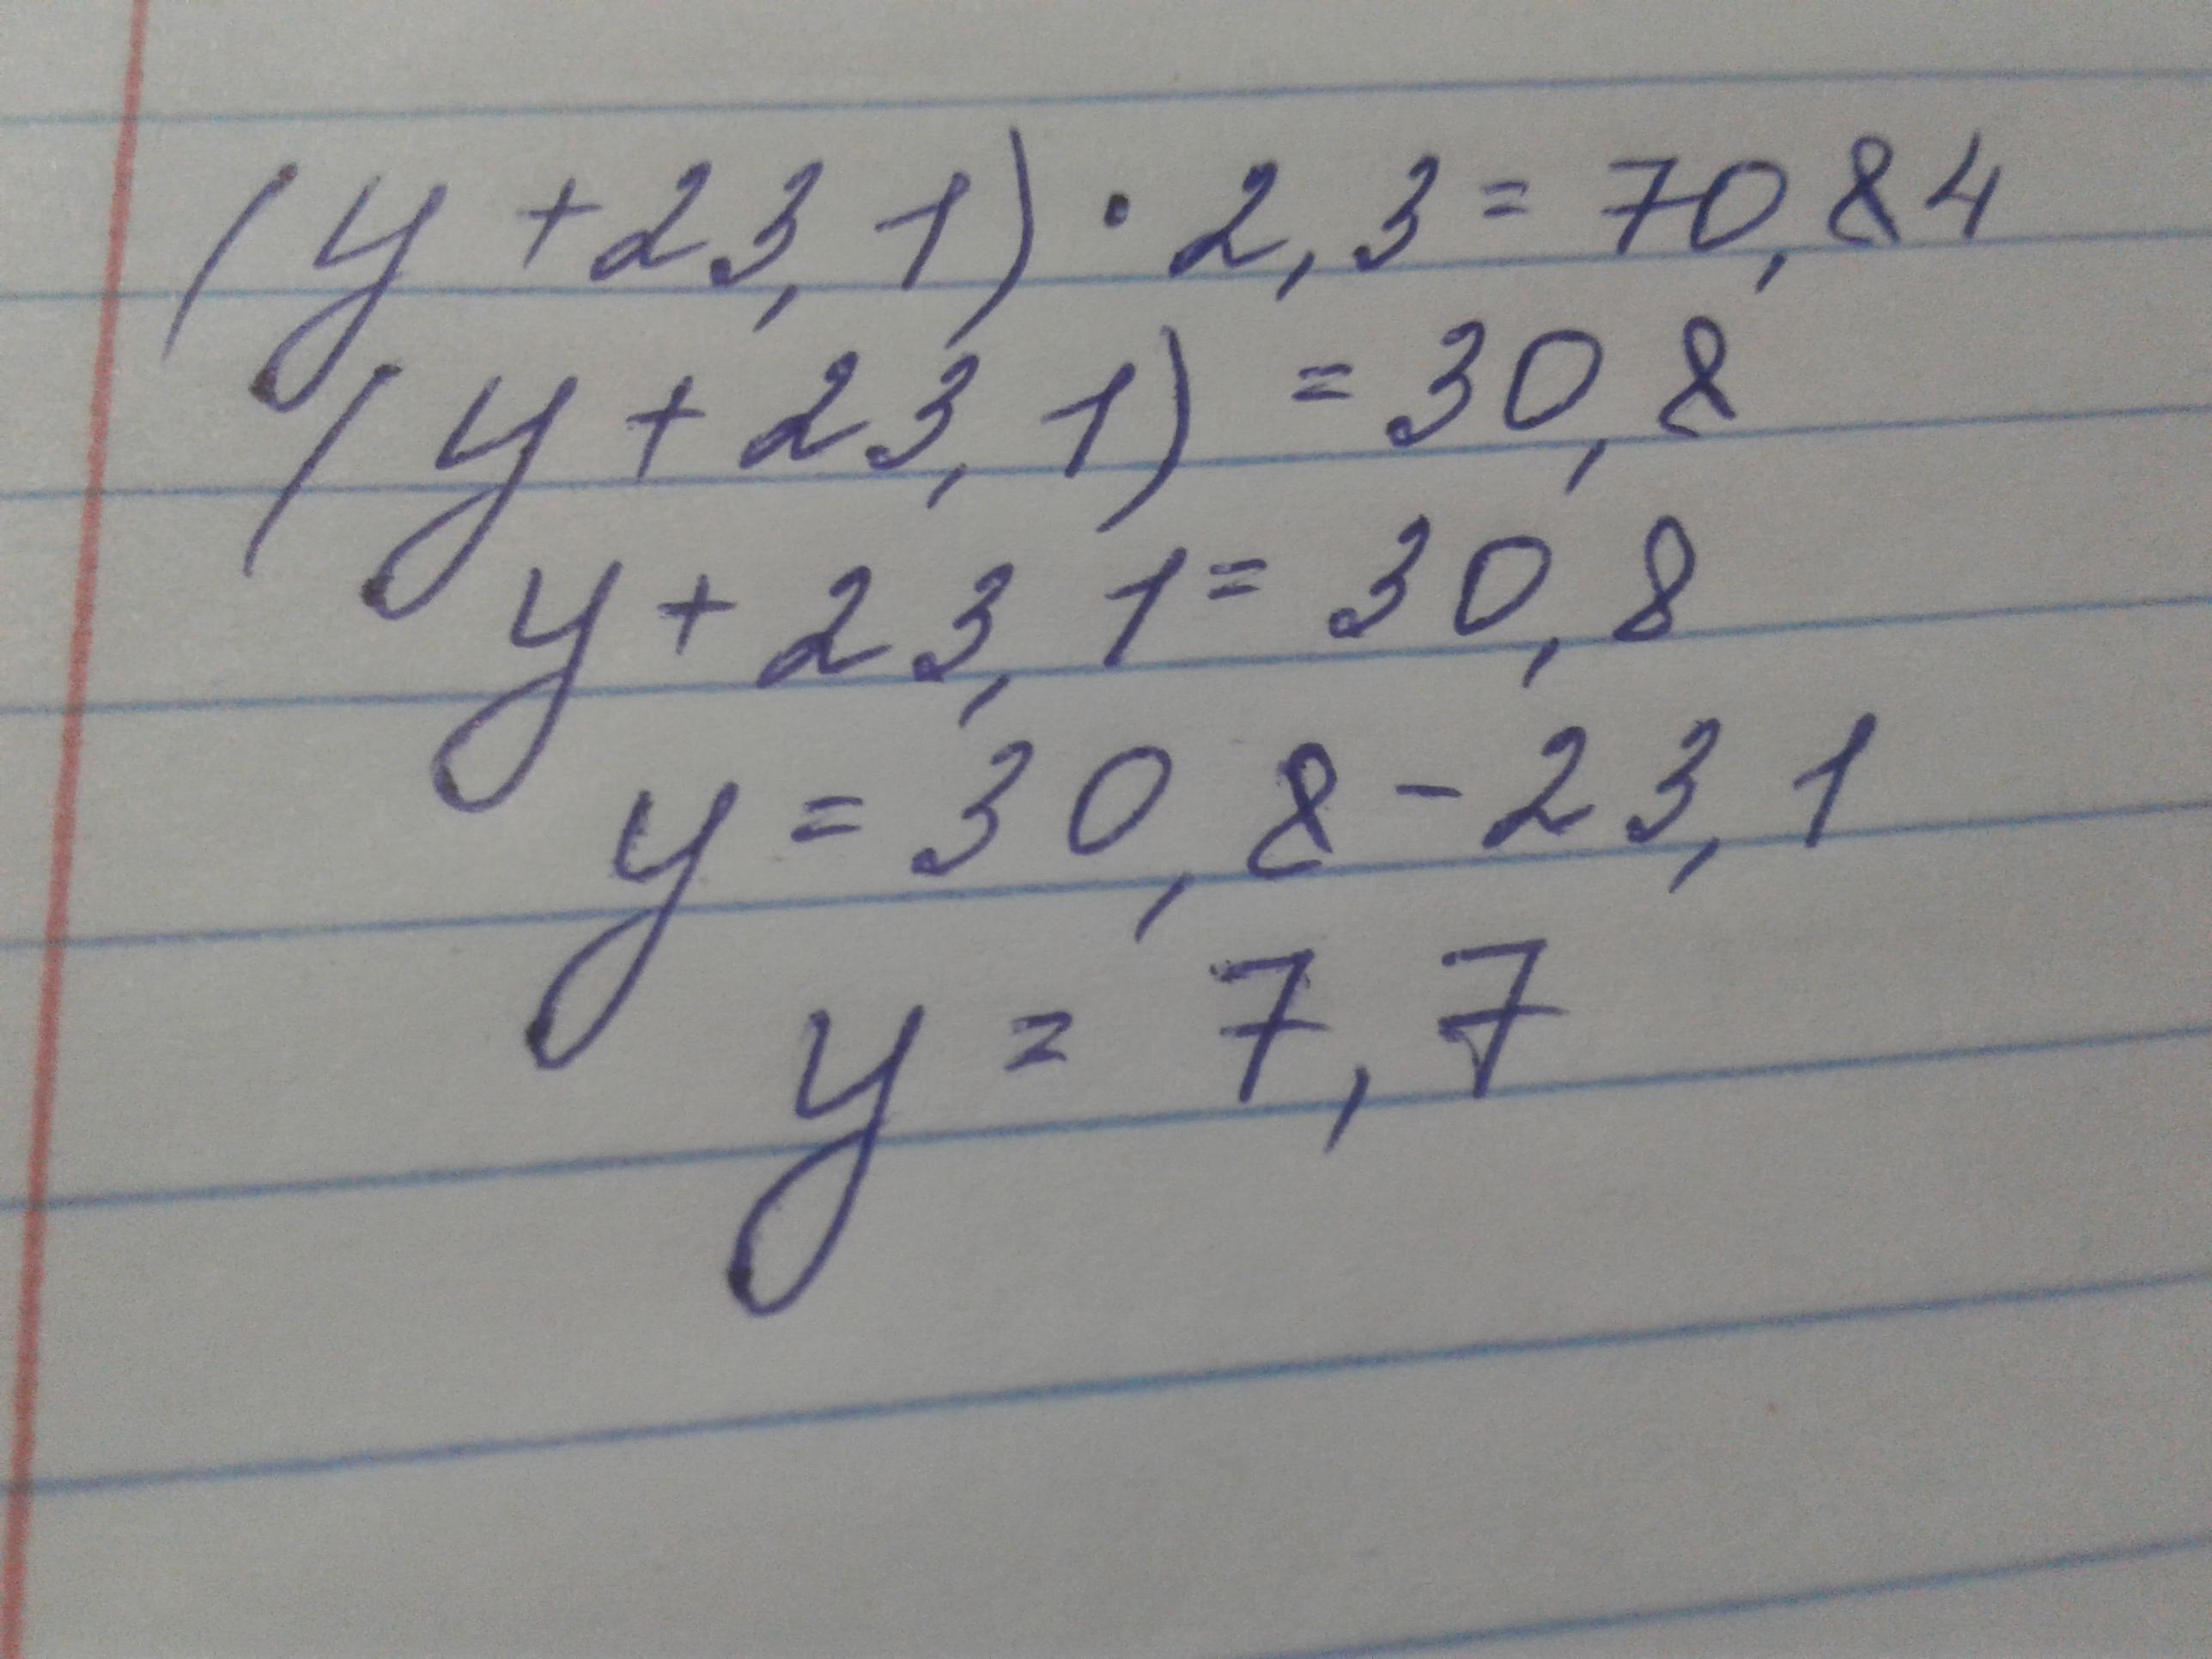 (y + 23,1) · 2,3 = 70,84
(y + 23,1) = 30,8
y + 23,1 = 30,8
y = 30,8 - 23,1
y = 7,7